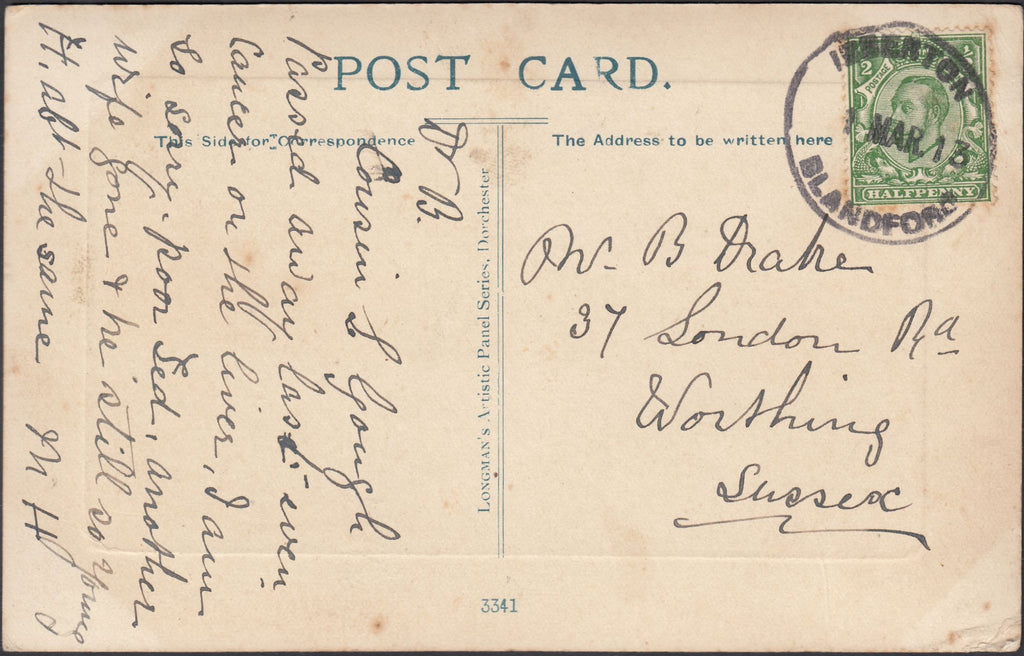 POST CARD.
This Side for Correspondence
The Address to be written here
D B.
Cousin L Gough
passed away last even
Cancer on the liver, I am
so sorry, poor Ted, another
wife gone & he still so young
H, abt the same M H
LONGMAN'S Artistic Panel Series, Dorchester
3341
1/2 POSTAGE 1/2
HALFPENNY
IBBERTON
MAR. 13
BLANDFORD
Mr B Drake
37 London Rd
Worthing
Sussex